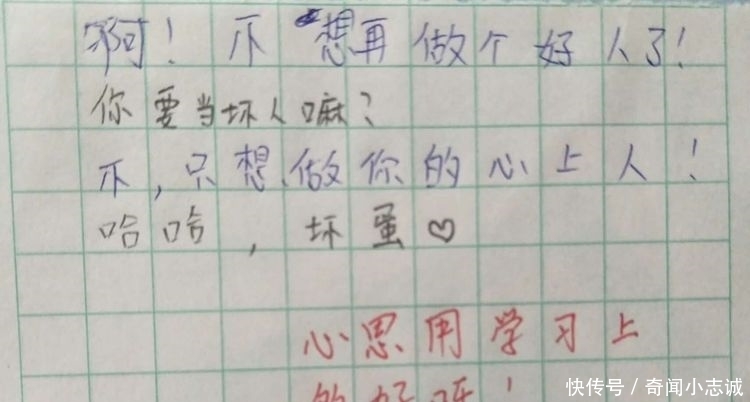 啊！不想再做个好人了！
你要当坏人嘛？
不，只想做你的心上人！
哈哈，坏蛋♡
心思用学习上
的好呀！
快传号/奇闻小志诚